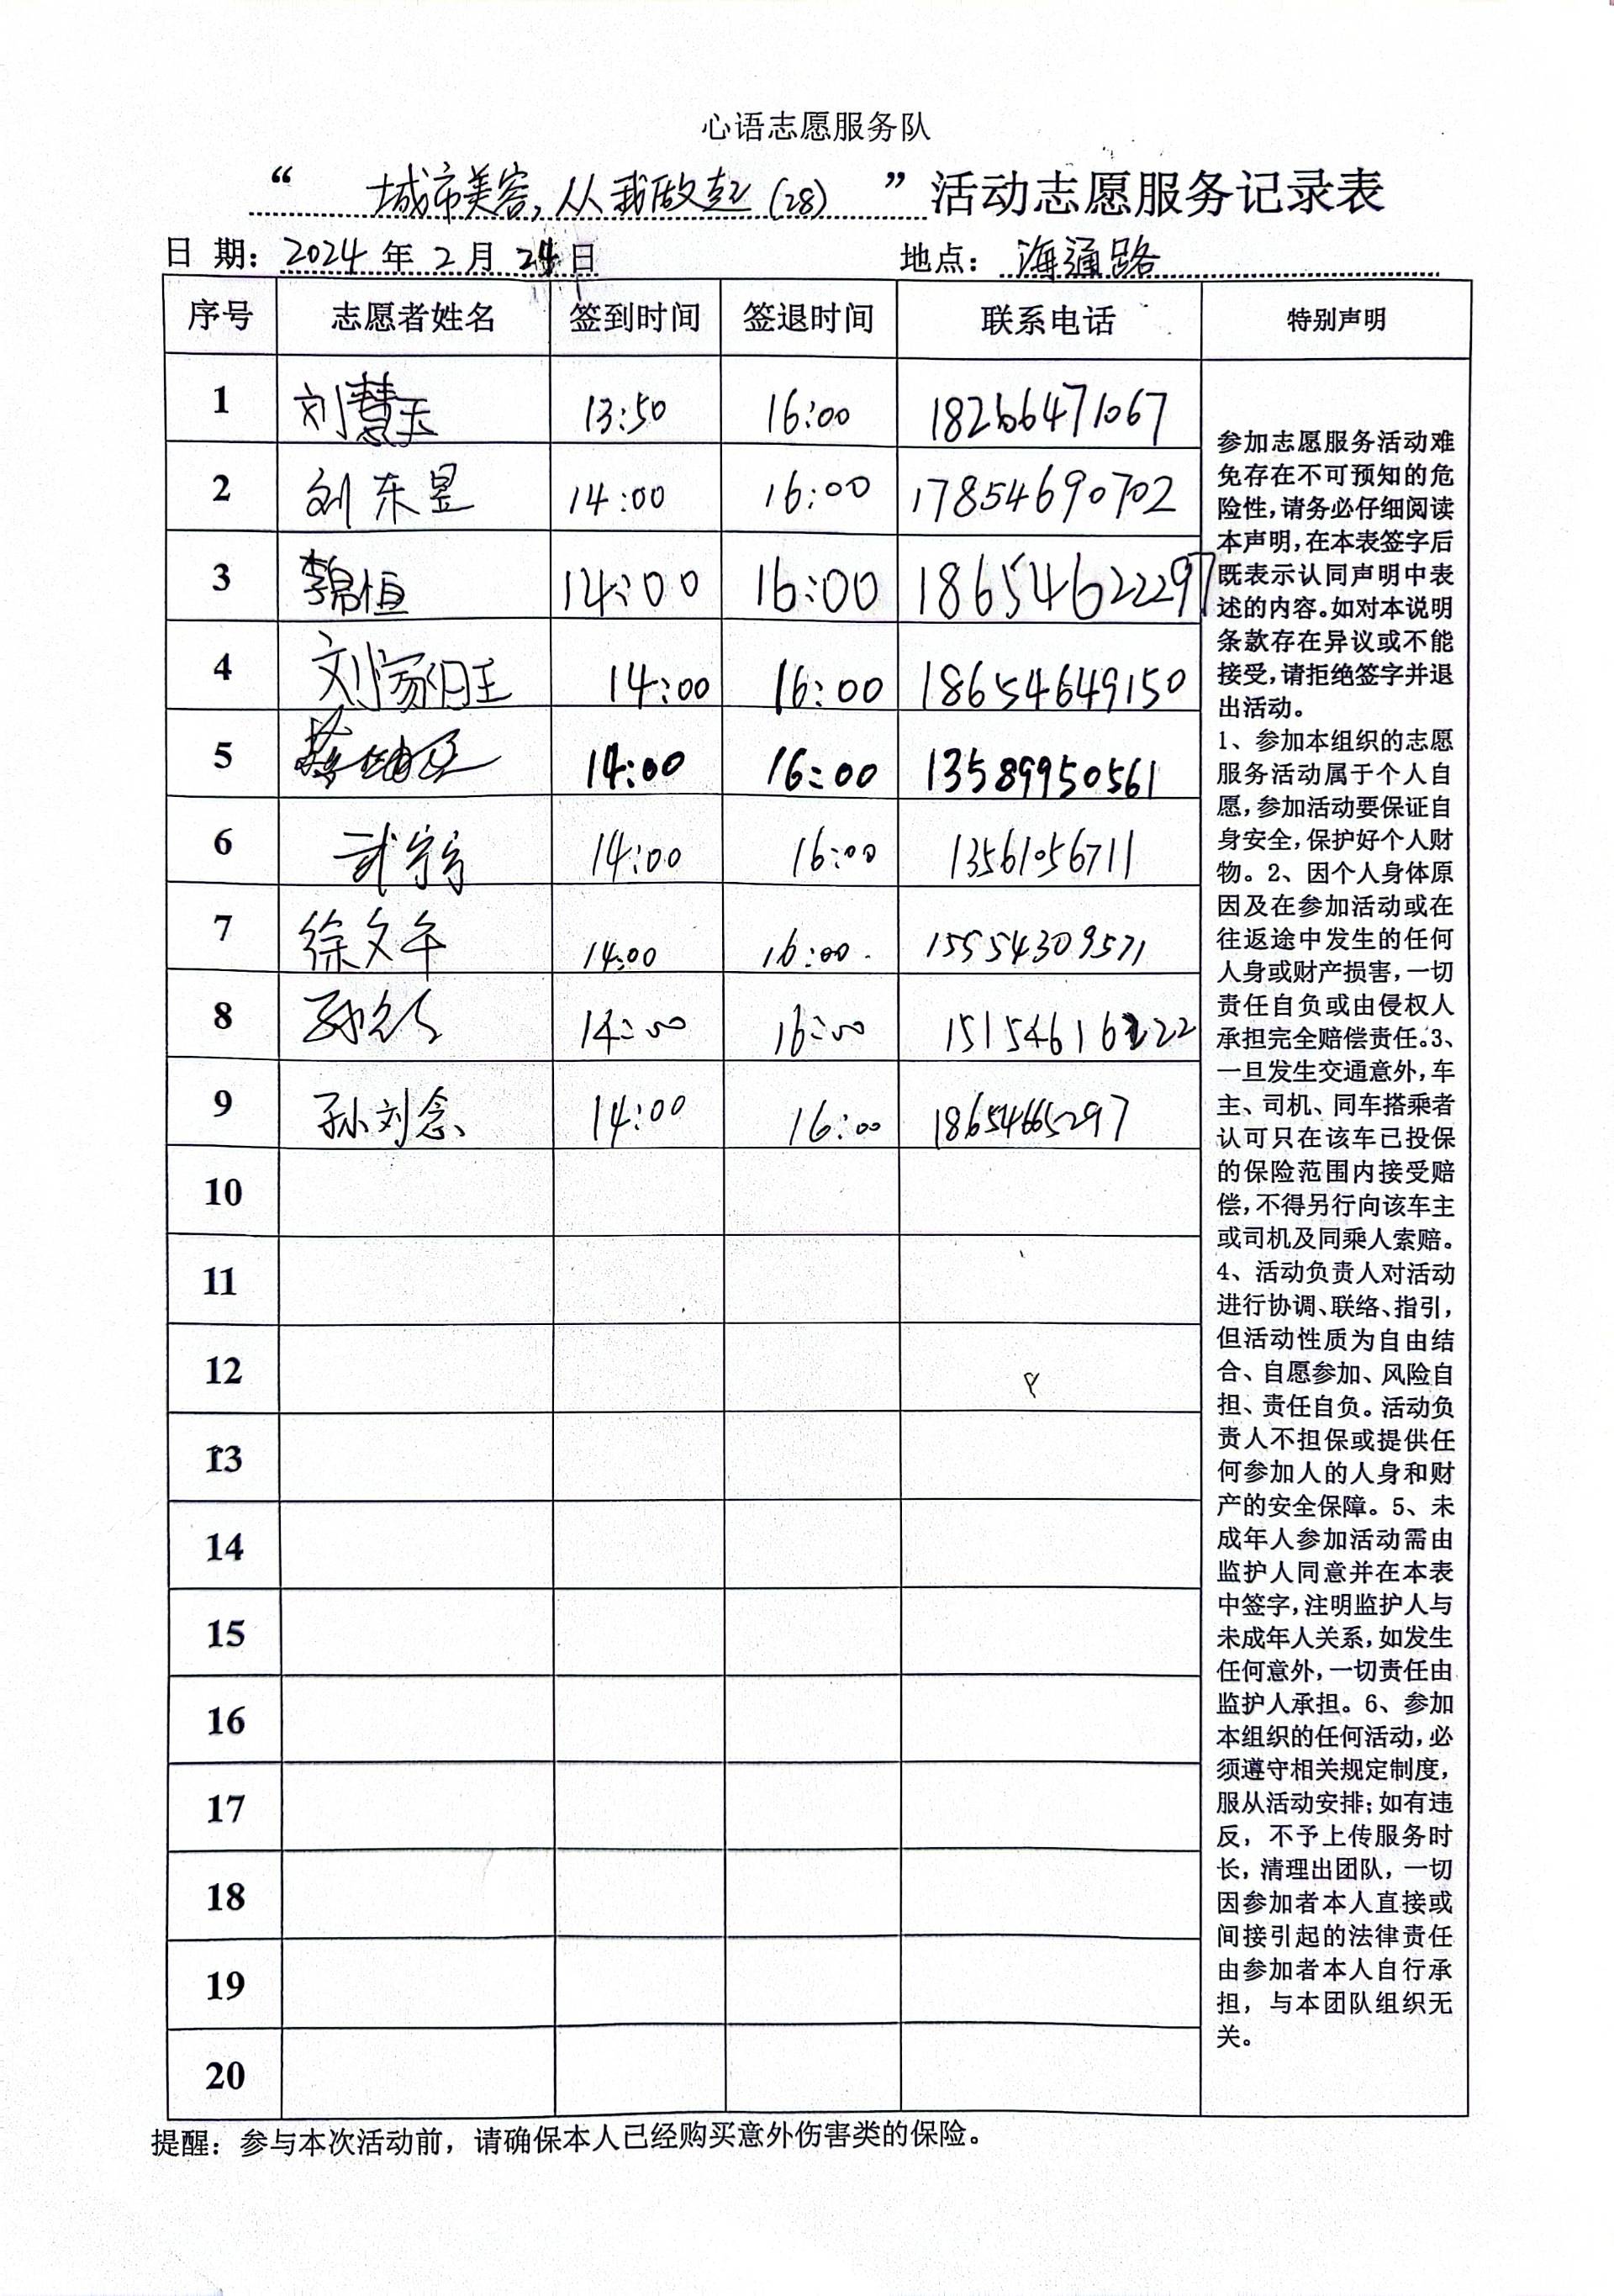 心语志愿服务队
“ 城市美容,从我做起(28) ”活动志愿服务记录表
日 期: 2024 年 2 月 24 日 地点: 海通路
序号 志愿者姓名 签到时间 签退时间 联系电话 特别声明
1 刘慧玉 13:50 16:00 18266471067
2 刘东昱 14:00 16:00 17854690702
3 李锦恒 14:00 16:00 18654622297
4 14:00 16:00 18654649150
5 14:00 16:00 13589950561
6 武宁宁 14:00 16:00 13561056711
7 徐文午 14:00 16:00 15554309571
8 14:00 16:00 15154616222
9 孙刘念 14:00 16:00 18654665297
10
11
12
13
14
15
16
17
18
19
20
参加志愿服务活动难
免存在不可预知的危
险性,请务必仔细阅读
本声明,在本表签字后
既表示认同声明中表
述的内容。如对本说明
条款存在异议或不能
接受,请拒绝签字并退
出活动。
1、参加本组织的志愿
服务活动属于个人自
愿,参加活动要保证自
身安全,保护好个人财
物。2、因个人身体原
因及在参加活动或在
往返途中发生的任何
人身或财产损害,一切
责任自负或由侵权人
承担完全赔偿责任。3、
一旦发生交通意外,车
主、司机、同车搭乘者
认可只在该车已投保
的保险范围内接受赔
偿,不得另行向该车主
或司机及同乘人索赔。
4、活动负责人对活动
进行协调、联络、指引,
但活动性质为自由结
合、自愿参加、风险自
担、责任自负。活动负
责人不担保或提供任
何参加人的人身和财
产的安全保障。5、未
成年人参加活动需由
监护人同意并在本表
中签字,注明监护人与
未成年人关系,如发生
任何意外,一切责任由
监护人承担。6、参加
本组织的任何活动,必
须遵守相关规定制度,
服从活动安排;如有违
反,不予上传服务时
长,清理出团队,一切
因参加者本人直接或
间接引起的法律责任
由参加者本人自行承
担,与本团队组织无
关。
提醒:参与本次活动前,请确保本人已经购买意外伤害类的保险。